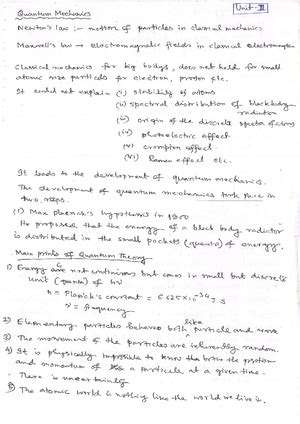 Unit-III
Quantum Mechanics
Newton's law :- motion of particles in classical mechanics
Maxwell's law → electromagnetic fields in classical electromagnetism
Classical mechanics for big bodys, does not hold for small
atomic size particles for electron, proton etc.
It could not explain (i) stability of atoms
(ii) spectral distribution of blackbody
radiation
(iii) origin of the discrete spectra of atoms
(iv) photoelectric effect
(v) crompton effect
(vi) Raman effect etc.
It leads to the development of quantum mechanics.
The development of quantum mechanics took place in
two steps.
(1) Max Planck's hypothesis in 1900
He proposes that the energy of a black body radiator
is distributed in the small pockets (quanta) of energy.
Main points of Quantum Theory
1) Energy are not continuous but comes in small but discrete
unit (quanta of hν)
h = Planck's constant = 6.625×10⁻³⁴ J.S
ν = frequency
2) Elementary particles behaves like both particle and wave
3) The movement of the particles are inherently random.
4) It is physically impossible to know the both the position
and momentum of a particle at a given time.
There is uncertainty
5) The atomic world is nothing like the world we live in.